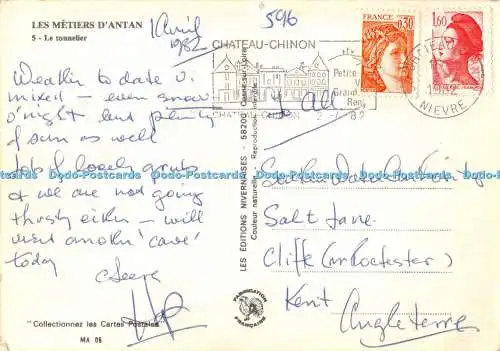 LES MÉTIERS D'ANTAN
5 - Le tonnelier
1 Avril
1982
596
Weather to date v.
mixed — even snow
o'night but plenty
of sun as well
lots of lovely grub
& we are not going
thirsty either — will
visit another 'cave'
today
Cheers
"Collectionnez les Cartes Postales"
MA 06
LES EDITIONS NIVERNAISES - 58200 Cosne-sur-Loire
Couleur naturelle - Reproduction interdite
FABRICATION
FRANÇAISE
CHATEAU-CHINON
Petite
Grand
CHATEAU-CHINON
FRANCE
0,30
1,60
NIEVRE
To All
Salt Lane
Cliffe (nr Rochester)
Kent
Angleterre
H-Postcards-Worldwide